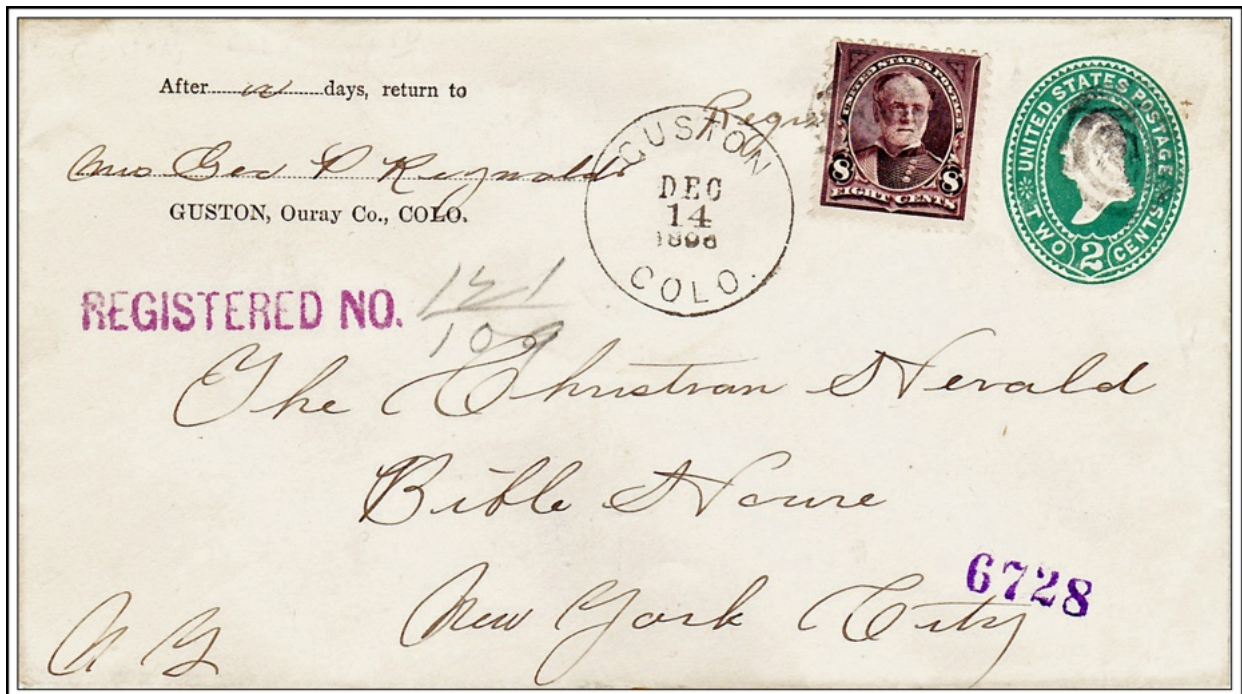 After 10 days, return to
Mrs Geo D Reynolds
GUSTON, Ouray Co., COLO.
GUSTON
DEC
14
1896
COLO.
UNITED STATES POSTAGE
8 8
EIGHT CENTS
UNITED STATES POSTAGE
TWO 2 CENTS
REGISTERED NO. 121
109
The Christian Herald
Bible House
New York City
6728
N Y